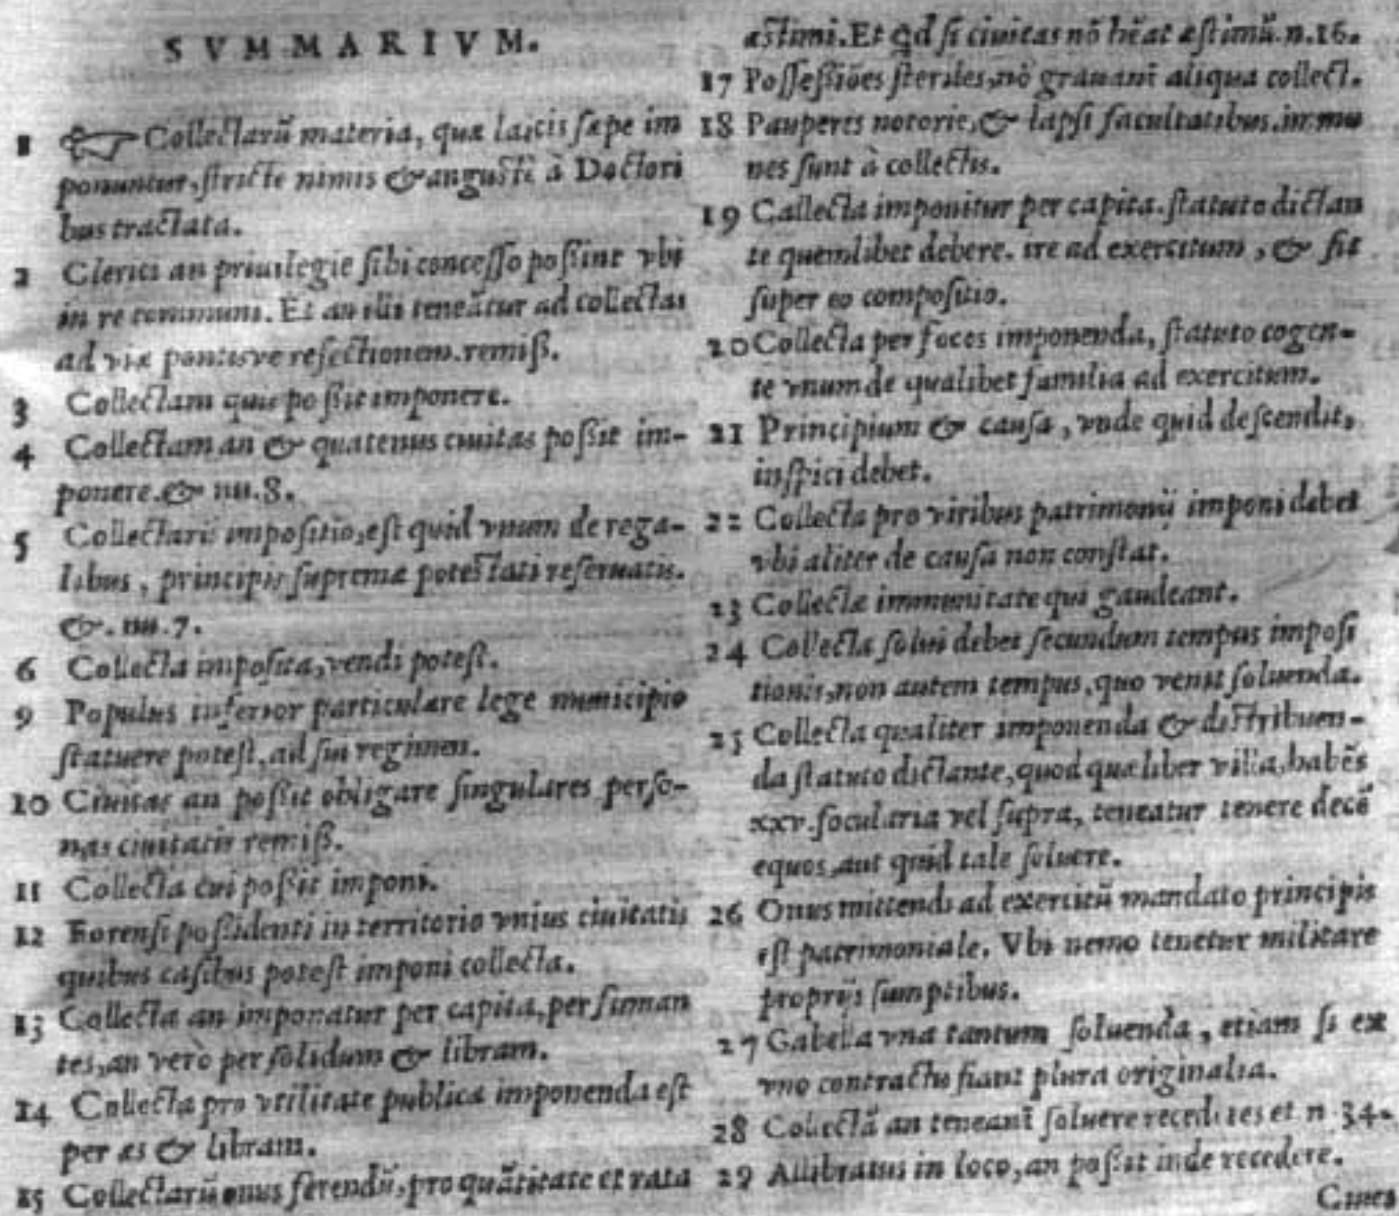 SVMMARIVM.
1 Collectarũ materia, quæ laicis sæpe im
ponuntur, stricte nimis & angustè à Doctori
bus tractata.
2 Clerici an priuilegie sibi concesso possint vbi
in re communi. Et an illi teneãtur ad collectas
ad viæ pontisve refectionem. remiss.
3 Collectam quis possit imponere.
4 Collectam an & quatenus ciuitas possit im-
ponere. & nu. 8.
5 Collectaris impositio, est quid vnum de rega-
libus, principis supremæ potestati reseruatis.
&. nu. 7.
6 Collecta imposita, vendi potest.
9 Populus inferior particulare lege municipio
statuere potest, ad sui regimen.
10 Ciuitas an possit obligare singulares perso-
nas ciuitatis remiss.
11 Collecta cui possit imponi.
12 Forensi possidenti in territorio vnius ciuitatis
quibus casibus potest imponi collecta.
13 Collecta an imponatur per capita, per siman
tes, an verò per solidum & libram.
14 Collecta pro vtilitate publica imponenda est
per æs & libram.
15 Collectarũ onus ferendũ, pro quãtitate et rata
æstimi. Et qd si ciuitas nõ hẽat æstimũ. n. 16.
17 Possessiões steriles, nõ grauant̃ aliqua collect.
18 Pauperes notorie, & lapsi facultatibus. immu
nes sunt à collectis.
19 Callecta imponitur per capita. statuto dictan
te quemlibet debere. ire ad exercitum, & sit
super eo compositio.
20 Collecta per foces imponenda, statuto cogen-
te vnum de qualibet familia ad exercitum.
21 Principium & causa, vnde quid descendit,
inspici debet.
22 Collecta pro viribus patrimonij imponi debet
vbi aliter de causa non constat.
23 Collectæ immunitate qui gaudeant.
24 Collecta solui debet secundum tempus imposi
tionis, non autem tempus, quo venit soluenda.
25 Collecta qualiter imponenda & distribuen-
da statuto dictante, quod quæliber villa, habẽs
xxv. focularia vel supra, teneatur tenere decẽ
equos, aut quid tale soluere.
26 Onus mittendi ad exercitũ mandato principis
est patrimoniale. Vbi nemo tenetur militare
proprijs sumptibus.
27 Gabella vna tantum soluenda, etiam si ex
vno contractu fiant plura originalia.
28 Collectã an teneant̃ soluere recedẽtes et n 34.
29 Allibratus in loco, an possit inde recedere.
Ciues